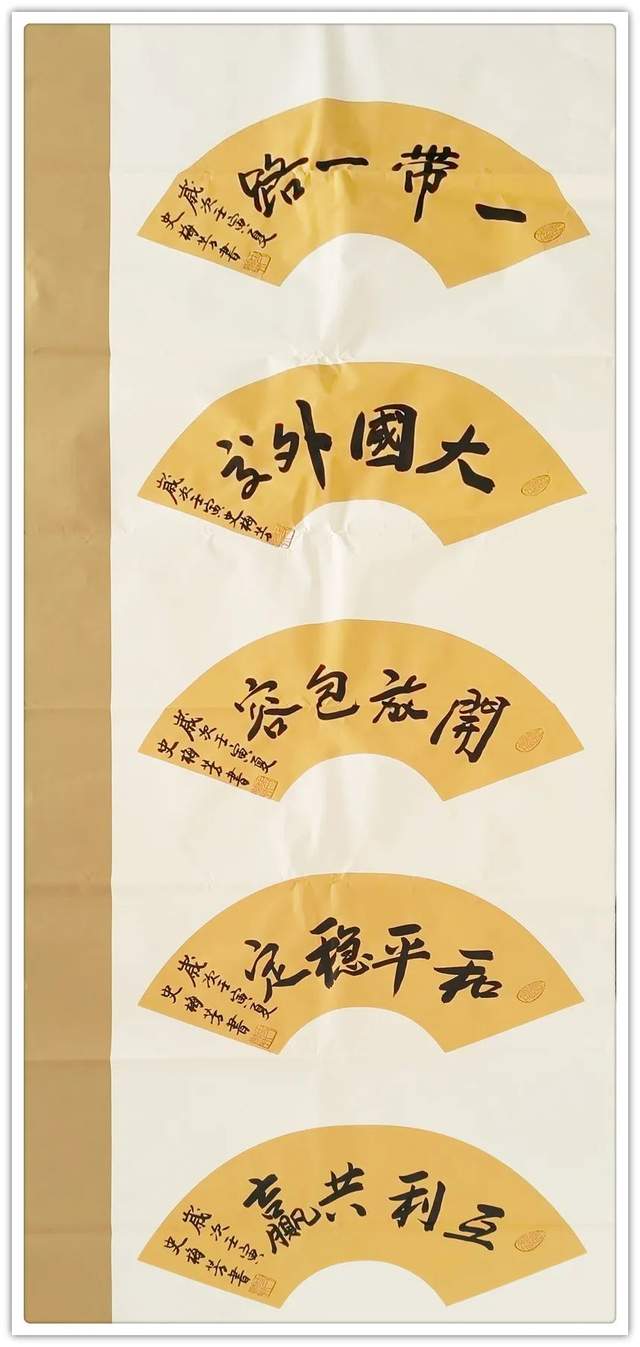 一带一路
歲次壬寅夏
史梅芳書
大國外交
歲次壬寅史梅芳
開放包容
歲次壬寅夏
史梅芳書
和平稳定
歲次壬寅夏
史梅芳書
互利共赢
歲次壬寅
史梅芳書